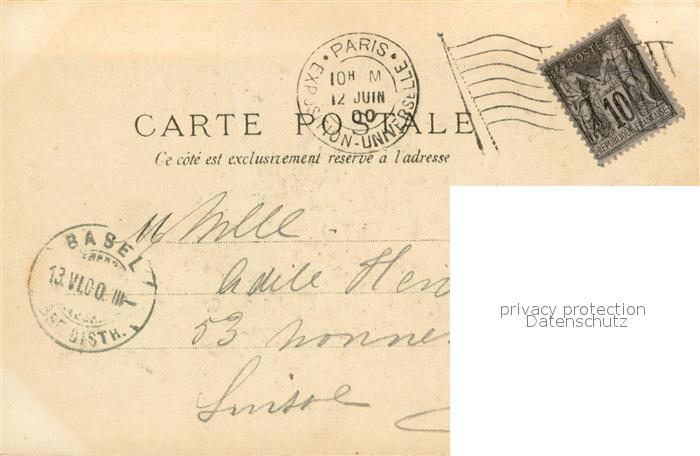 PARIS
EXPOSITION-UNIVERSELLE
10H M
12 JUIN
00
POSTE
10
REPUBLIQUE FRANÇAISE
CARTE POSTALE
Ce côté est exclusivement réservé à l'adresse
BASEL 1
13.VI.00.III-
BRF.DISTR.
Mlle
Adèle
53
Suisse
privacy protection
Datenschutz